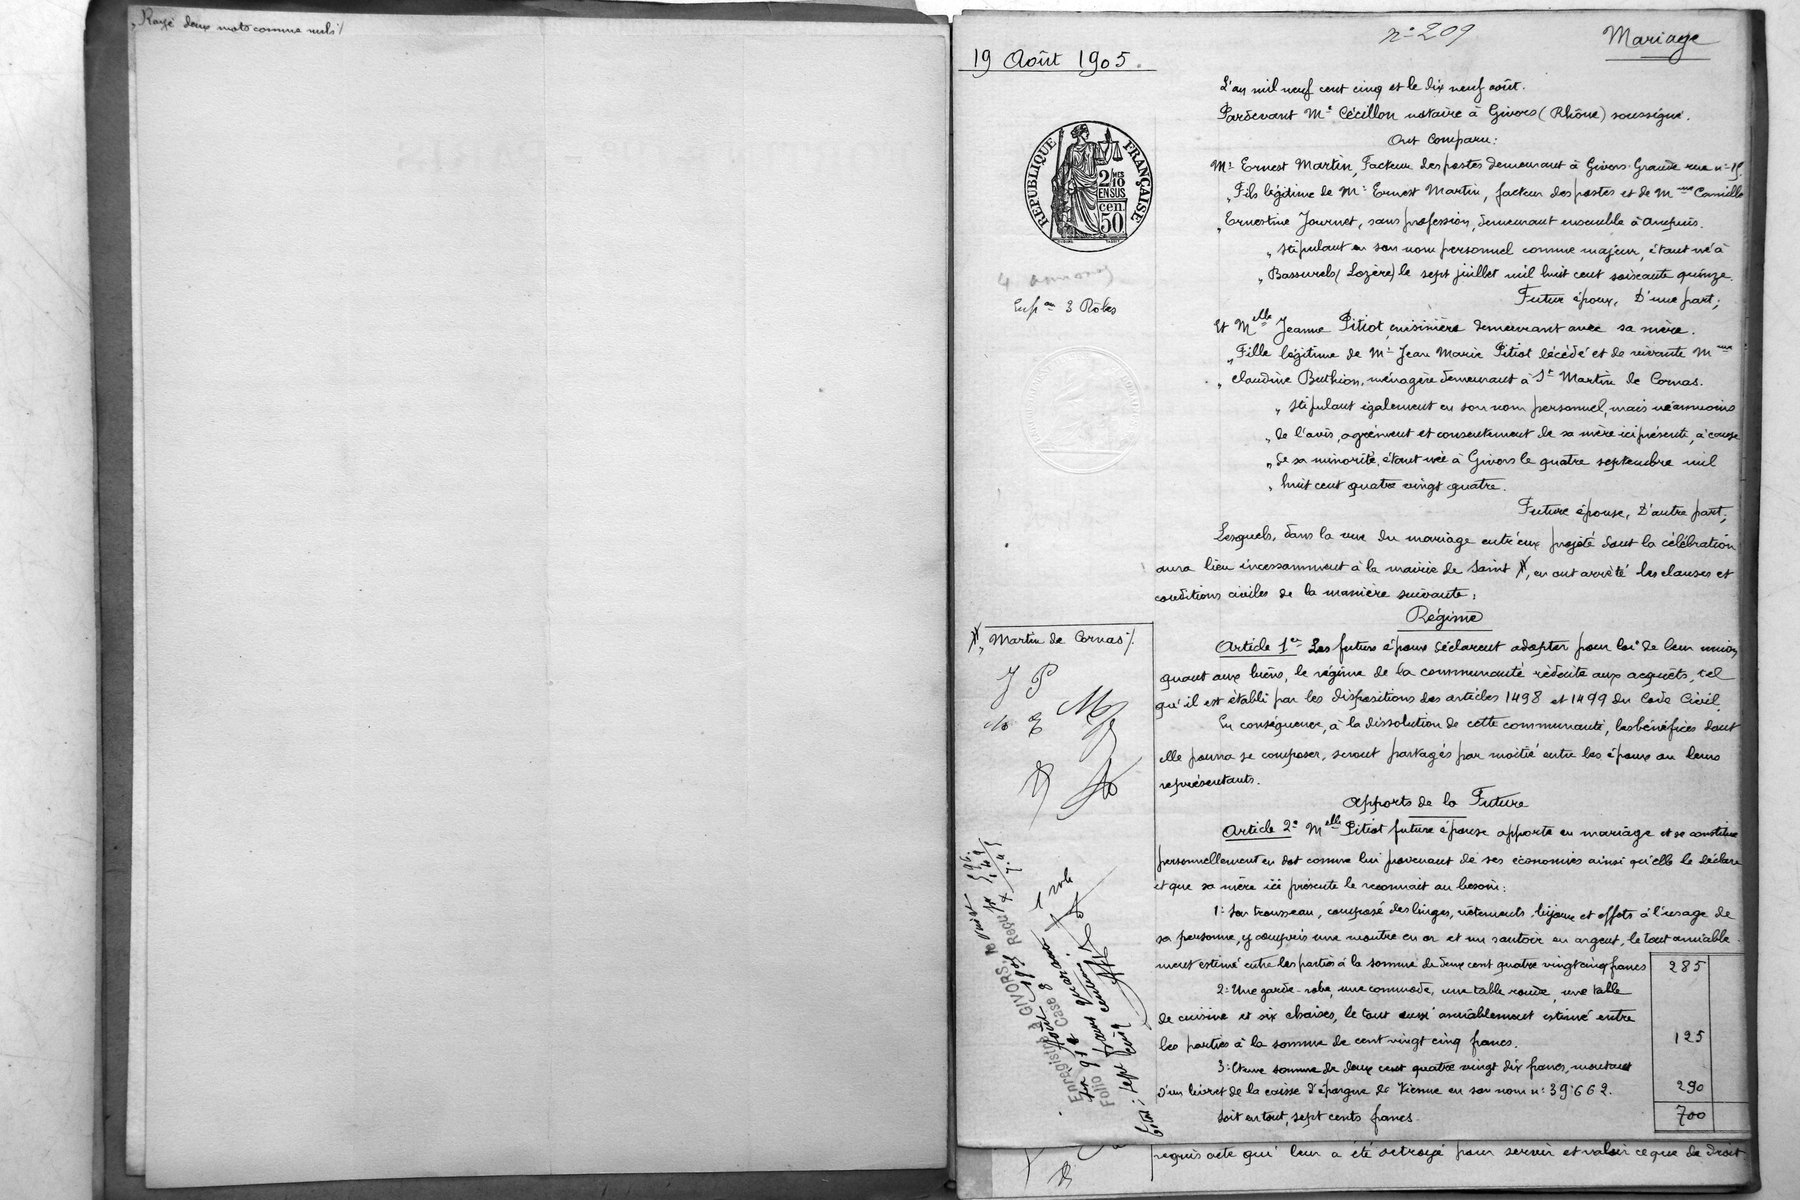 „ Rayé deux mots comme nuls /
nº 209
Mariage
19 Août 1905.
L'an mil neuf cent cinq et le dix neuf août.
Pardevant Mᵉ Cécillon notaire à Givors (Rhône) soussigné.
Ont Comparu:
Mʳ Ernest Martin, Facteur des postes demeurant à Givors Grande rue nº 15.
„ Fils légitime de Mʳ Ernest Martin, facteur des postes et de Mᵐᵉ Camille
„ Ernestine Journet, sans profession, demeurant ensemble à Ampuis.
„ stipulant en son nom personnel comme majeur, étant né à
„ Bassurels (Lozère) le sept juillet mil huit cent soixante quinze.
Futur époux, D'une part;
Et Mᵉˡˡᵉ Jeanne Pitiot, cuisinière demeurant avec sa mère.
„ Fille légitime de Mʳ Jean Marie Pitiot décédé et de vivante Mᵐᵉ
„ Claudine Buthion, ménagère demeurant à Sᵗ Martin de Cornas.
„ stipulant également en son nom personnel, mais néanmoins
„ de l'avis, agrément et consentement de sa mère ici présente, à cause
„ de sa minorité, étant née à Givors le quatre septembre mil
„ huit cent quatre vingt quatre.
Future épouse, D'autre part;
Lesquels, dans la vue du mariage entr'eux projeté dont la célébration
aura lieu incessamment à la mairie de Saint #, en ont arrêté les clauses et
conditions civiles de la manière suivante:
Régime
Article 1ᵉʳ Les futurs époux déclarent adopter pour loi de leur union
quant aux biens, le régime de la communauté réduite aux acquêts, tel
qu'il est établi par les dispositions des articles 1498 et 1499 du Code Civil.
En conséquence, à la dissolution de cette communauté, les bénéfices dont
elle pourra se composer, seront partagés par moitié entre les époux ou leurs
représentants.
Apports de la Future
Article 2ᵉ Mᵉˡˡᵉ Pitiot future épouse apporte en mariage et se constitue
personnellement en dot comme lui provenant de ses économies ainsi qu'elle le déclare
et que sa mère ici présente le reconnait au besoin:
1º Son trousseau, composé des linges, vêtements, bijoux et effets à l'usage de
sa personne, y compris une montre en or et un sautoir en argent, le tout amiable-
ment estimé entre les parties à la somme de deux cent quatre vingt cinq francs 285
2º Une garde-robe, une commode, une table ronde, une table
de cuisine et six chaises, le tout aussi amiablement estimé entre
les parties à la somme de cent vingt cinq francs. 125
3º Et une somme de deux cent quatre vingt dix francs, montant
d'un livret de la caisse d'épargne de Vienne en son nom nº 39662. 290
Soit en tout, sept cents francs. 700
requis acte qui leur a été octroyé pour servir et valoir ce que de droit
RÉPUBLIQUE FRANÇAISE
2 MES
10
EN SUS
cen.
50
Expᵒⁿ 3 Rôles
# „ Martin de Cornas /.
J P
Enregistré à GIVORS, le
Folio 91 Case 8
Reçu
1 role